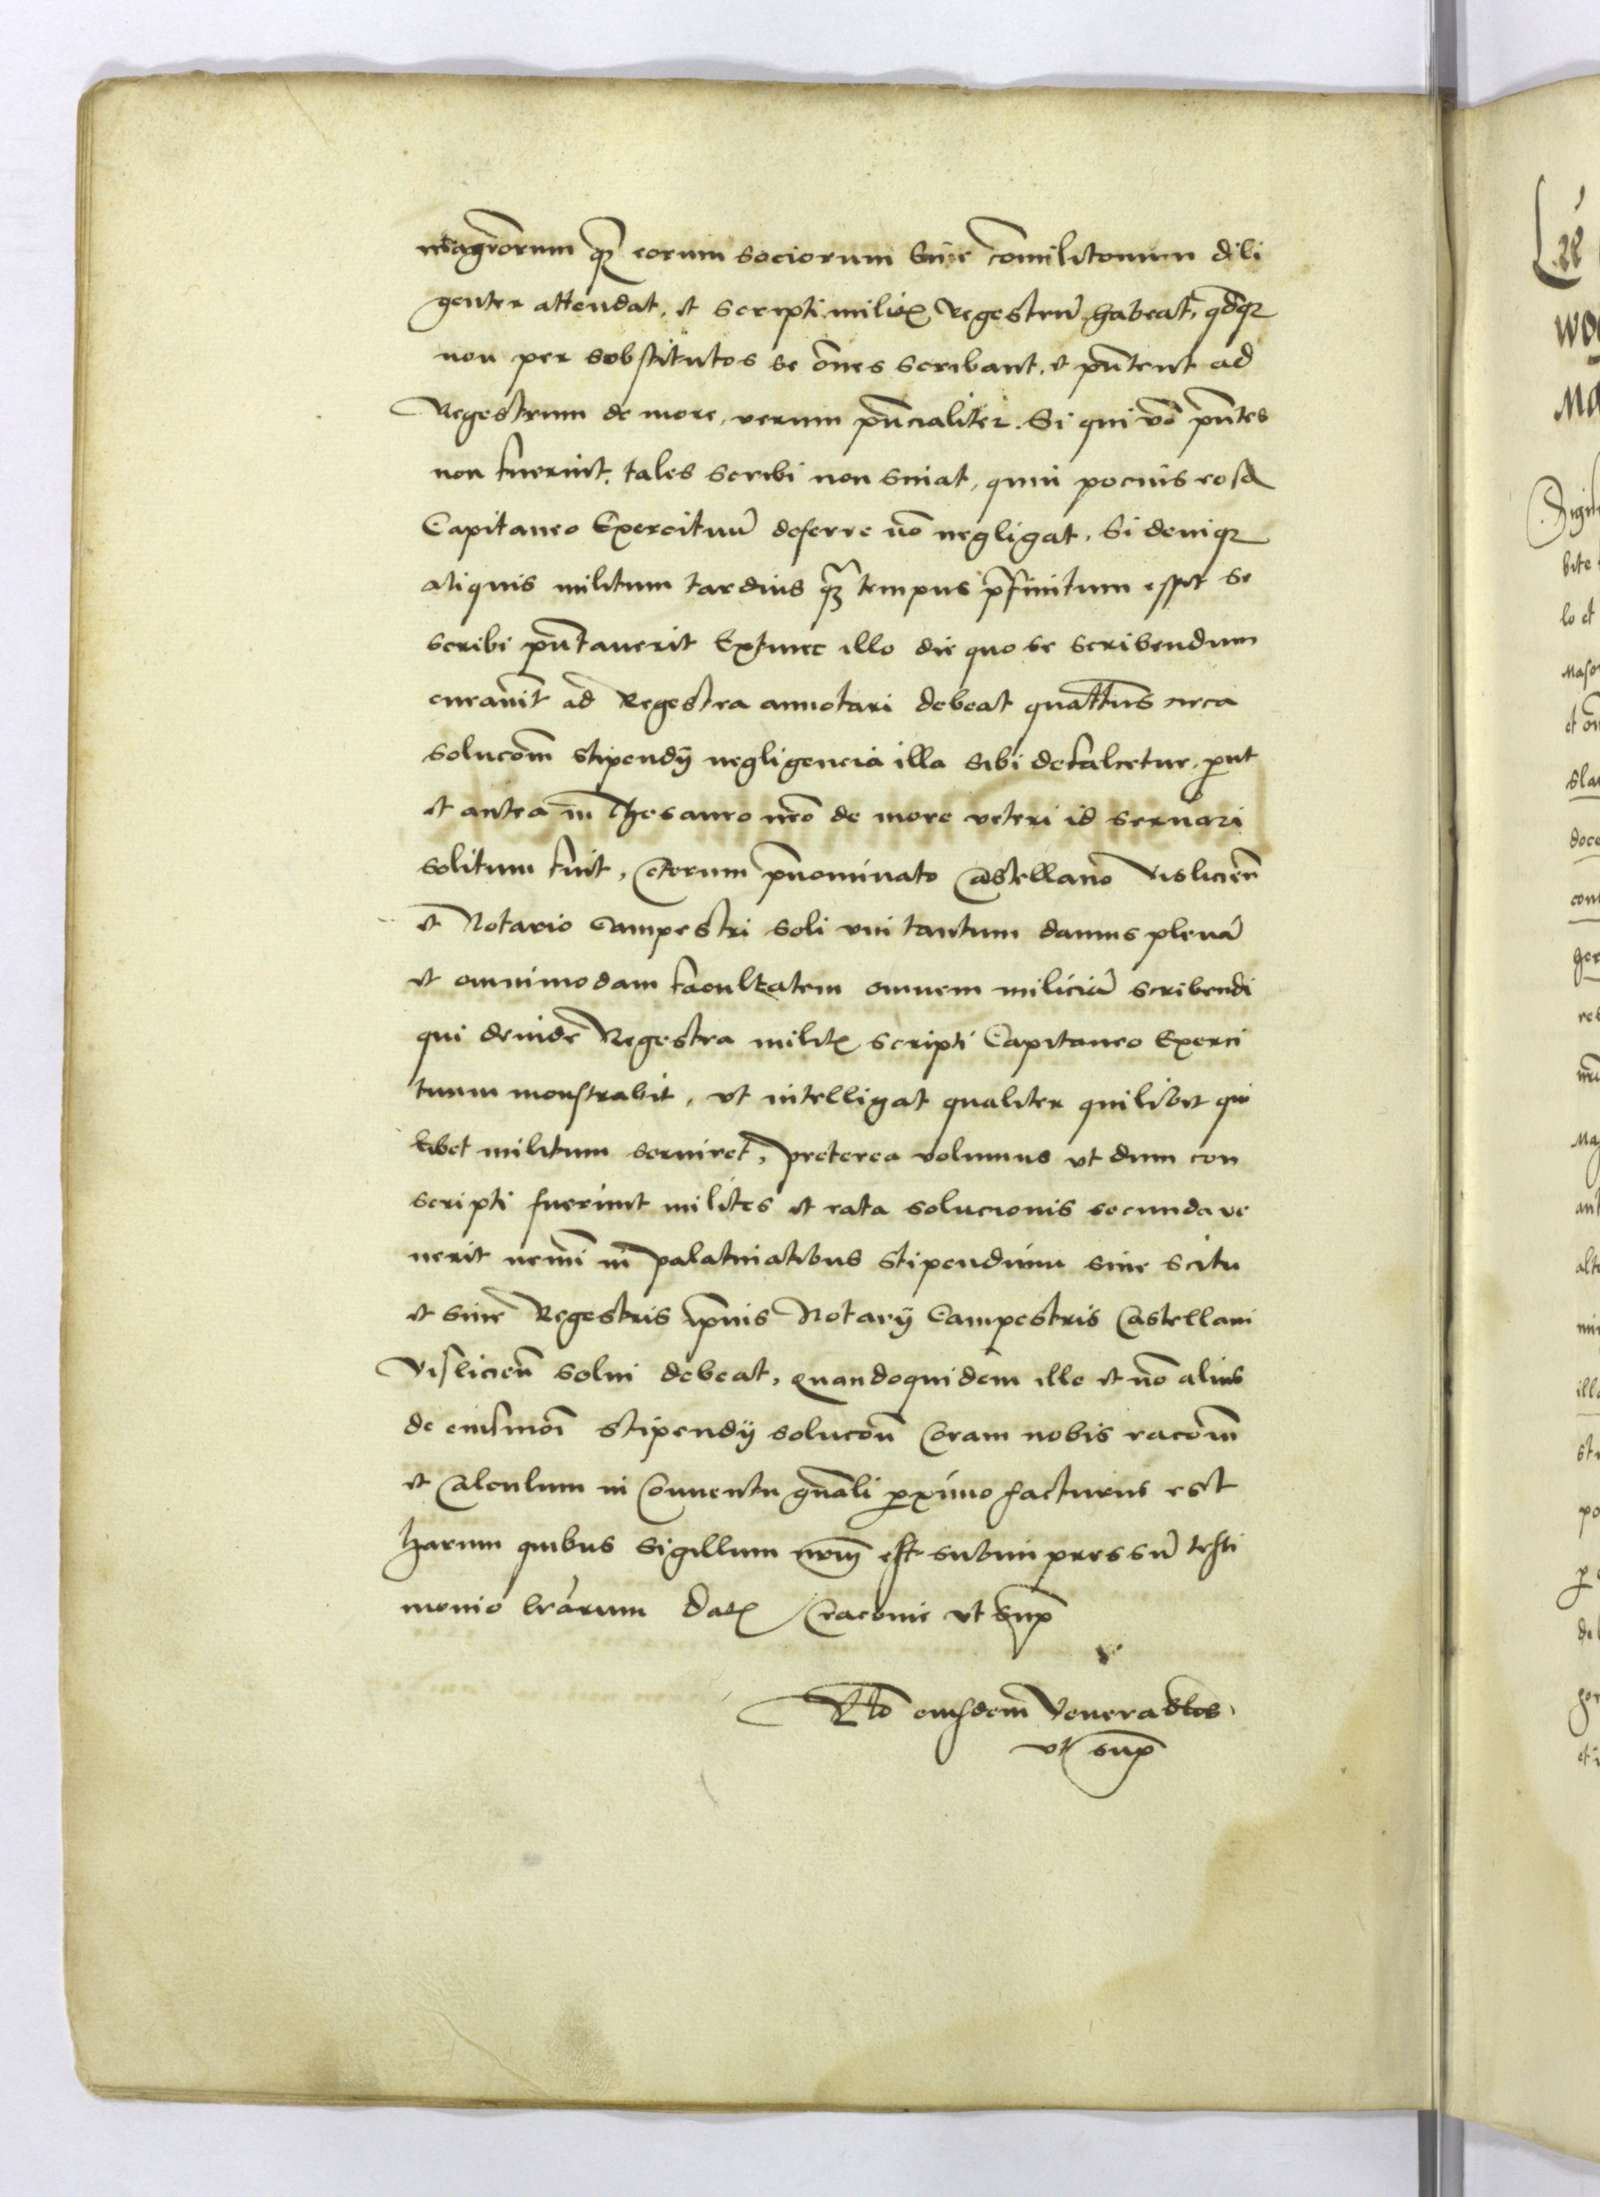 magrorum q̃ eorum sociorum sine comilitonum dili
genter attendat, et scripti milit Regestrũ habeat, qdq
non per substitutos se oñes scribant, et pñtent ad
Regestrum de more, verum pñcialiter. Si qui vo pñtes
non fuerint, tales scribi non sinat, quin pocius eosd
Capitaneo Exercituũ deferre nõ negligat, Si deniq
aliquis militum tardius q̃ tempus p̃finitum esset se
scribi pñtauerit Extunc illo die quo se scribendum
curauit ad Regestra annotari debeat quattus circa
solucom̃ stipendij negligencia illa sibi defalcetur, put
et antea in Thesauro nr̃o de more veteri id seruari
solitum fuit, Ceterum p̃nominato Castellano Visliciẽn
et Notario Campestri soli vni tantum damus plenã
et omnimodam facultatem omnem miliciã scribendi
qui deinde Regestra milit scripti Capitaneo Exerci
tuum monstrabit, vt intelligat qualiter quilibet qui
libet militum seruiret, preterea volumus vt dum con
scripti fuerint milites et rata solucionis secunda ve
nerit nemi in palatinatibus stipendium sine scitu
et sine Regestris ipsius Notarij Campestris Castellani
Visliciẽn solui debeat, quandoquidem ille et nõ alius
de eiusmoi stipendij solucoñ Coram nobis racom̃
et Calculum in Conuentu gñali pximo facturus est
harum quibus Sigillum nr̃m est subimpressũ testi
monio lr̃arum Dat Cracouie vt sup
Rlo eiusdem Veneradlos
vt sup